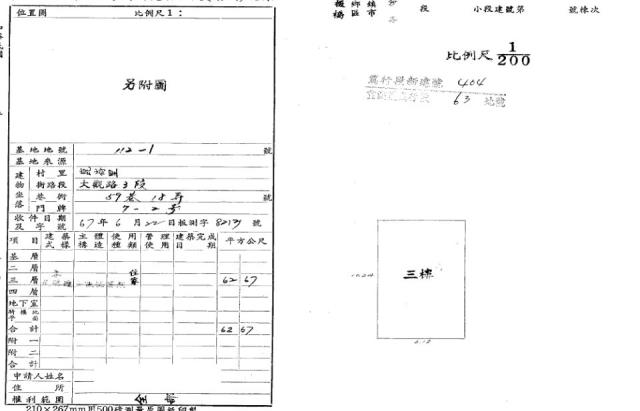 位置圖 比例尺1:
另附圖
基地地號 112-1 號
基地來源
建物坐落
村里
街路段 大觀路3段
巷術 59巷 18弄
門牌 7-2號
收件日期及字號 67年6月22日板測字8213號
項目 建築式樣 主體構造 使用種類 管理使用 建築完成日期 平方公尺
基層
二層
三層 住宅 62 67
四層
地下室
騎樓地平面
合計 62 67
附一
附二
合計
申請人姓名
住所
權利範圍 全部
210×267mm
板橋 鄉鎮市區 段 小段建號第 號棟次
比例尺 1/200
篤行段新建號 404
63 地號
三樓